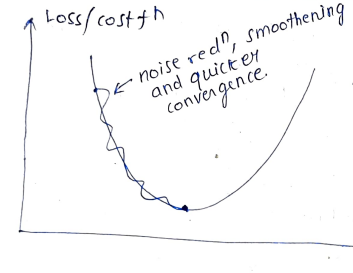 Loss/cost fn
noise redⁿ, smoothening
and quicker
convergence.